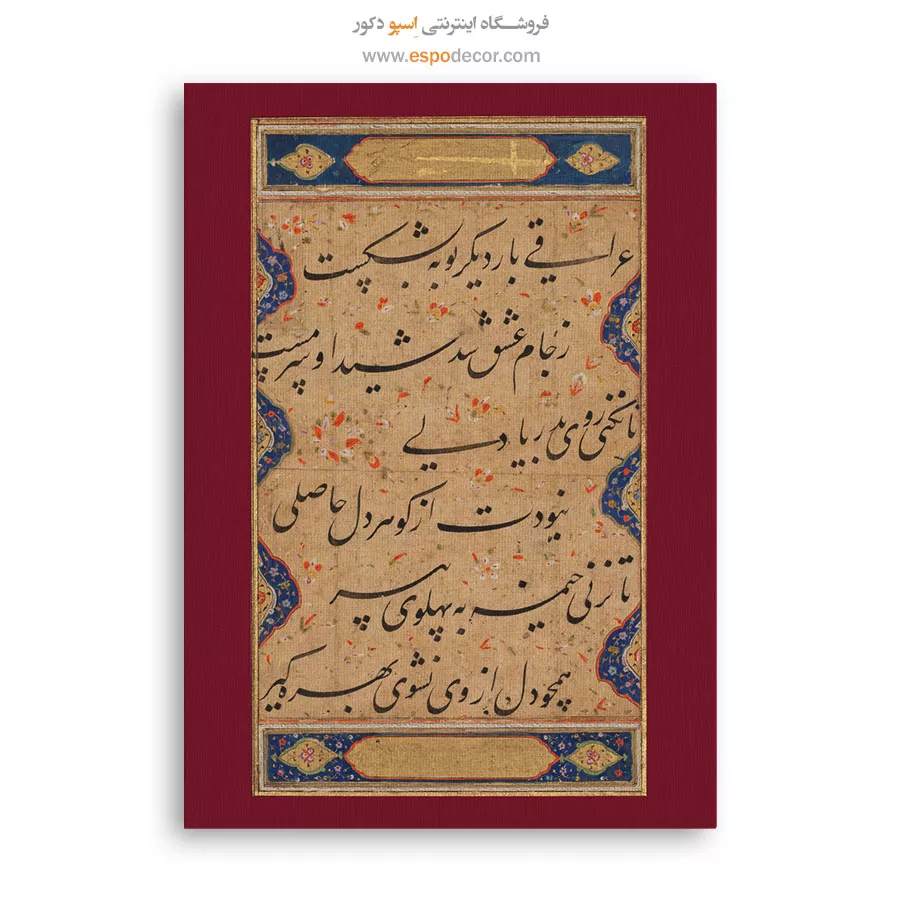 فروشگاه اینترنتی اِسپو دکور
www.espodecor.com
عراقی بار دیگر توبه بشکست
ز جام عشق شد شیدا و سرمست
تا نکنی روی بدریا دلی
نبودت از گوهر دل حاصلی
تا نزنی خیمه به پهلوی پیر
همچو دل از وی نشوی بهره گیر